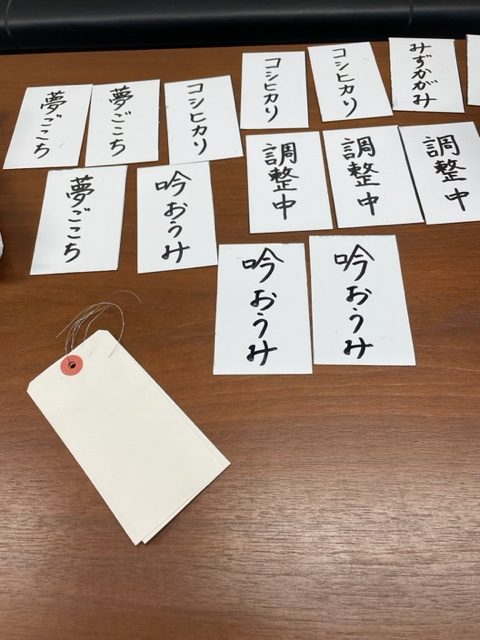 夢ごこち
夢ごこち
コシヒカリ
コシヒカリ
コシヒカリ
みずかがみ
夢ごこち
吟おうみ
調整中
調整中
調整中
吟おうみ
吟おうみ